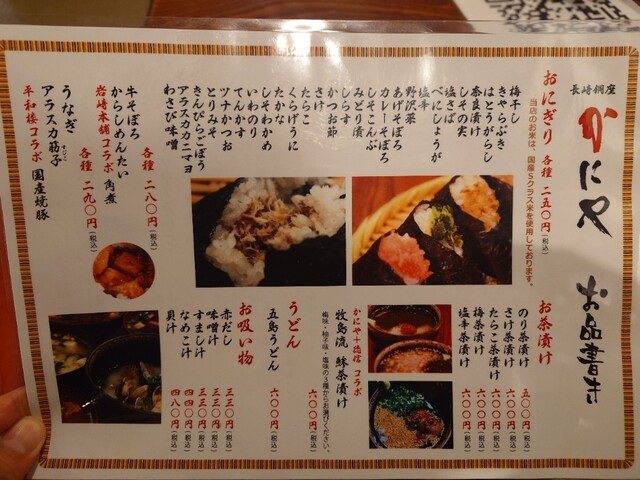 長崎銅座
かにや お品書き
おにぎり 各種 二五〇円(税込)
当店のお米は、国産Sクラス米を使用しております。
梅干し
きゃらぶき
はとうがらし
奈良漬け
しその実
塩さば
べにしょうが
塩辛
野沢菜
あげそぼろ
カレーそぼろ
しそこんぶ
みどり漬
しらす
かつお節
さけ
たらこ
くらげうに
たかな
しそわかめ
いわのり
てんかす
ツナかつお
とりみそ
きんぴらごぼう
アラスカカニマヨ
わさび味噌
各種 二八〇円(税込)
牛そぼろ
からしめんたい
岩崎本舗コラボ 角煮
各種 二九〇円(税込)
うなぎ
アラスカ筋子
平和楼コラボ 国産焼豚
お茶漬け
のり茶漬け 五〇〇円(税込)
さけ茶漬け 六〇〇円(税込)
たらこ茶漬け 六〇〇円(税込)
梅茶漬け 六〇〇円(税込)
塩辛茶漬け 六〇〇円(税込)
かにや+徳信 コラボ
牧島流 鯵茶漬け 六〇〇円(税込)
梅味・柚子味・塩味の3種からお選びください。
うどん
五島うどん 六〇〇円(税込)
お吸い物
赤だし 三三〇円(税込)
味噌汁 三三〇円(税込)
すまし汁 三三〇円(税込)
なめこ汁 四四〇円(税込)
貝汁 四八〇円(税込)